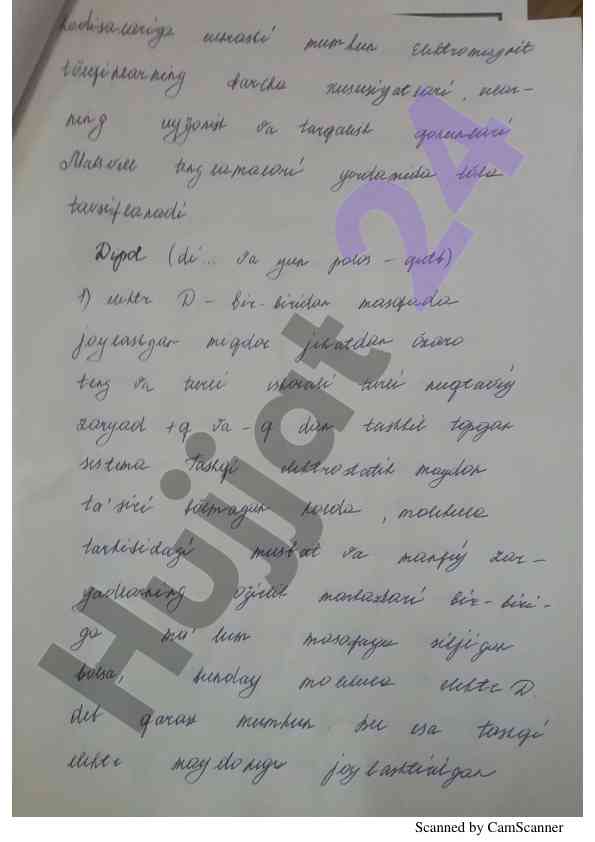 hodisalariga asrasli mumkun Elektromagnit
to'lqinlarning barcha xususiyatlari, ular-
ning uyg'onish va tarqalish qonunlari
Maksvell tenglamalari yordamida to'la
tavsiflanadi
Dipol (di... va yun polos - qutb)
1) elektr D - bir-biridan masofada
joylashgan miqdor jihatdan o'zaro
teng va turli ishorali turli nuqtaviy
zaryad +q va -q dan tashkil topgan
sistema Tashqi elektrostatik maydon
ta'siri bo'lmagan holda, molekula
tarkibidagi musbat va manfiy zar-
yadlarning og'irlik markazlari bir-biri-
ga ma'lum masofaga siljigan
bo'lsa, bunday molekula elektr D.
deb qarash mumkun. bu esa tashqi
elektr maydoniga joylashtirilgan
Hujjat 24
Scanned by CamScanner